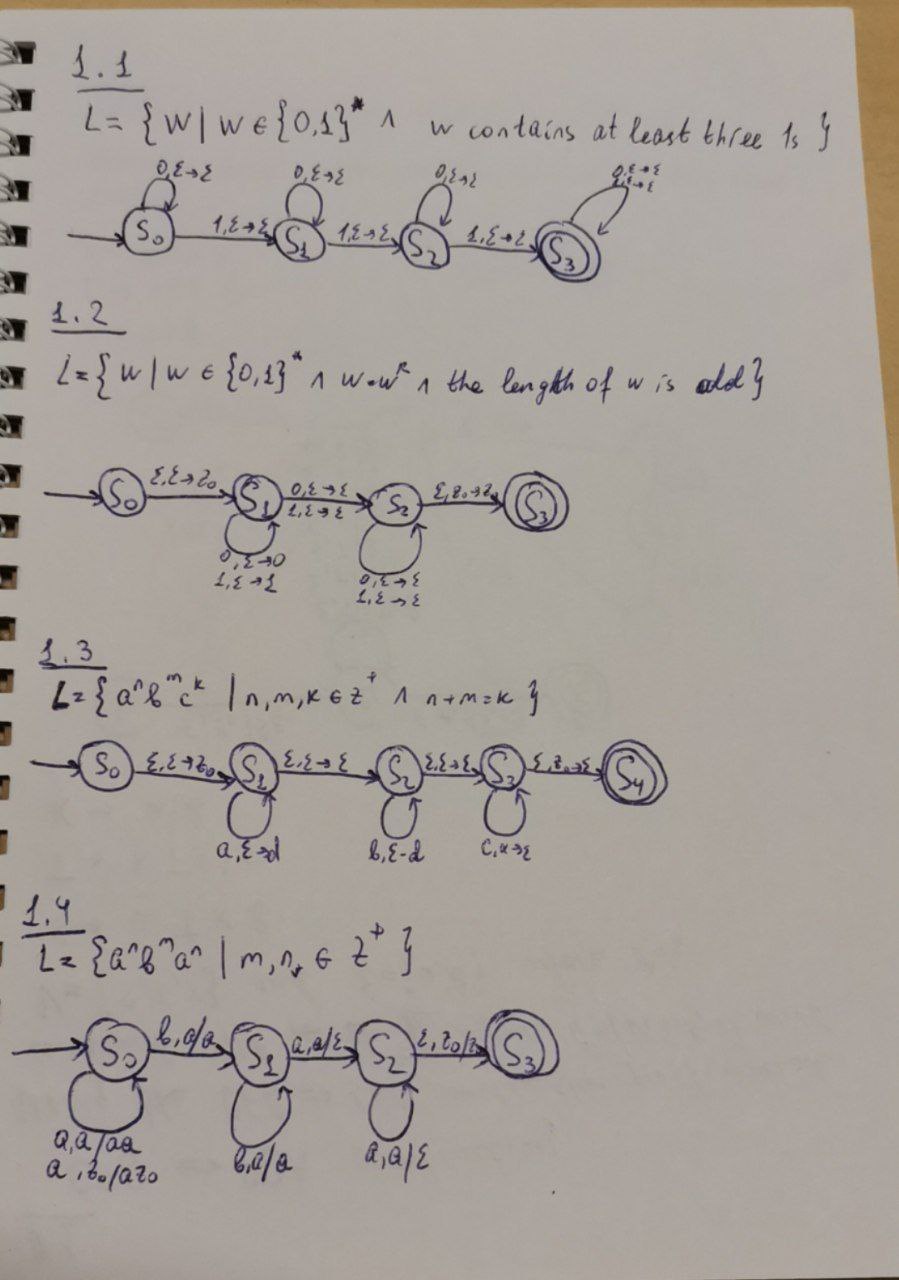 1.1
L = {w | w ∈ {0,1}* ∧ w contains at least three 1s }
0,ε→ε 0,ε→ε 0,ε→ε 0,ε→ε
1,ε→ε
S₀ 1,ε→ε S₁ 1,ε→ε S₂ 1,ε→ε S₃
1.2
L={ w | w ∈ {0,1}* ∧ w=wᴿ ∧ the length of w is odd}
S₀ ε,ε→z₀ S₁ 0,ε→ε S₂ ε,z₀→z₀ S₃
1,ε→ε
0,ε→0 0,ε→ε
1,ε→1 1,ε→ε
1.3
L={ aⁿbᵐcᵏ | n,m,k ∈ z⁺ ∧ n+m=k }
S₀ ε,ε→z₀ S₁ ε,ε→ε S₂ ε,ε→ε S₃ ε,z₀→ε S₄
a,ε→d b,ε-d c,α→ε
1.4
L= {aⁿbᵐaⁿ | m,n, ∈ z⁺ }
S₀ b,a/a S₁ a,a/ε S₂ ε,z₀/z S₃
a,a/aa b,a/a a,a/ε
a,z₀/az₀